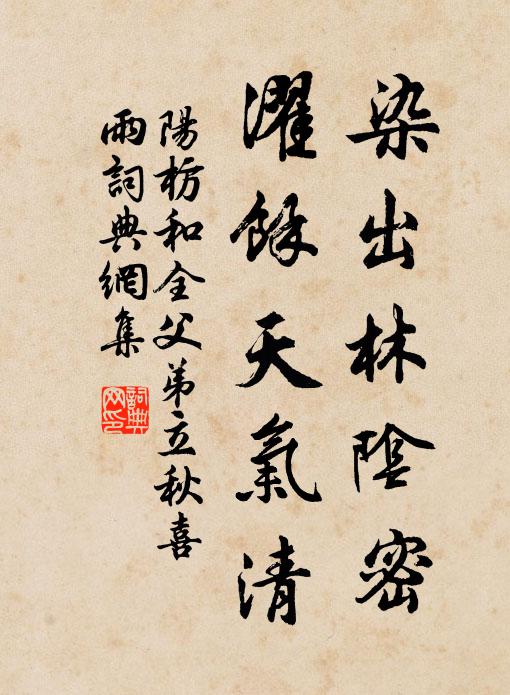 染出林陰密
濯餘天氣清
陽枋和全父弟立秋喜
雨詞典網集
詞典网印